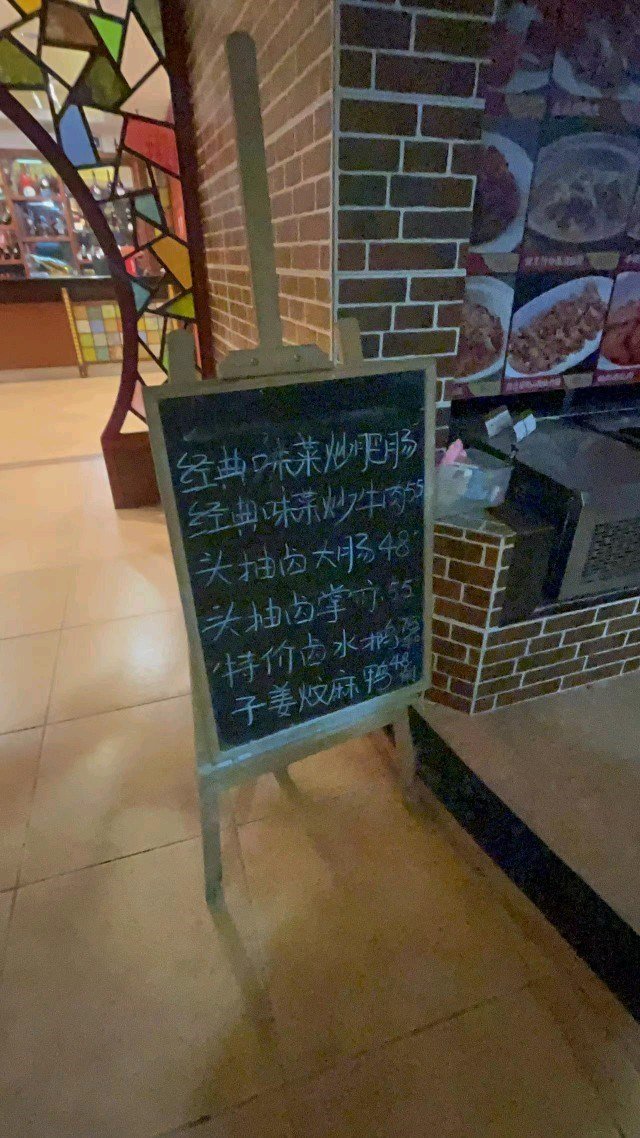 经典味菜炒肥肠
经典味菜炒牛肉55
头抽卤大肠48
头抽卤掌亦55
特价卤水鹅
子姜炆麻鸭